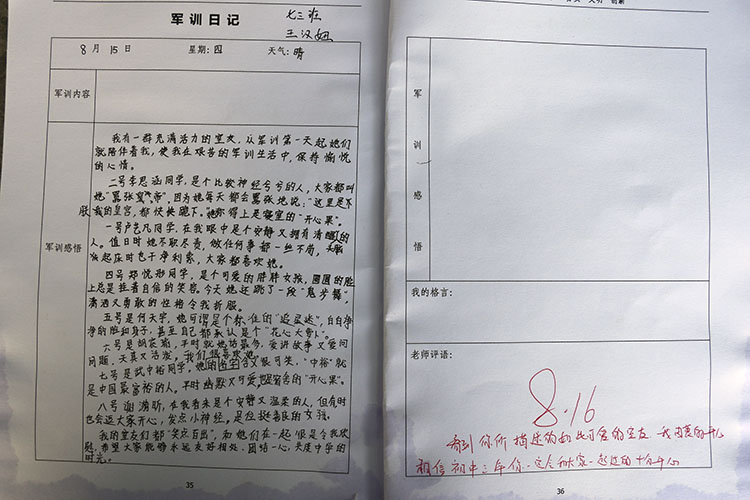 军训日记
七三班
王汉妞
8月15日 星期:四 天气:晴
军训内容
军训感悟
我有一群充满活力的室友,从军训第一天起她们
就陪伴着我,使我在艰苦的军训生活中,保持愉悦
的心情。
二号李思涵同学,是个比较神经兮兮的人,大家都叫
她"嚣张皇帝",因为她每天都会嚣张地说:"这里是
朕的皇宫,都快快跪下。"她称得上是寝室的"开心果"。
一号卢艺凡同学,在我眼中是个安静又拥有清晰的
人。值日时她尽职尽责,做任何事都一丝不苟,
起床时也干净利索,大家都喜欢她。
四号郑悦彤同学,是个可爱的胖胖女孩,圆圆的脸
上总是挂着自信的笑容。今天她还跳了一段"鬼步舞",
潇洒又勇敢的性格令我折服。
五号是何天宇,她可谓是个标准的"追星迷",白白净
净的脸和身子,甚至自己都承认是个"花心大萝卜"。
六号是胡家瑜,平时就她话最多,爱讲故事又爱问
问题,天真又活泼,我们很喜欢她。
七号是武中裕同学,她的名字含义很可笑,"中裕"就
是中国最富裕的人,平时幽默又可爱,是宿舍的"开心果"。
八号谢漪昕,在我看来是个安静又温柔的人,但有时
也会逗大家开心,发点小神经,是位挺善良的女孩。
我的室友们都"笑点百出",和她们在一起很是令我欣
慰,希望大家能够永远友好相处,团结一心,共度中学的
时光。
35
军训感悟
我的格言:
老师评语:
8.16
看到你所描述的如此可爱的室友,我由衷的开心
相信初中三年你一定会和大家一起过的十分开心
36